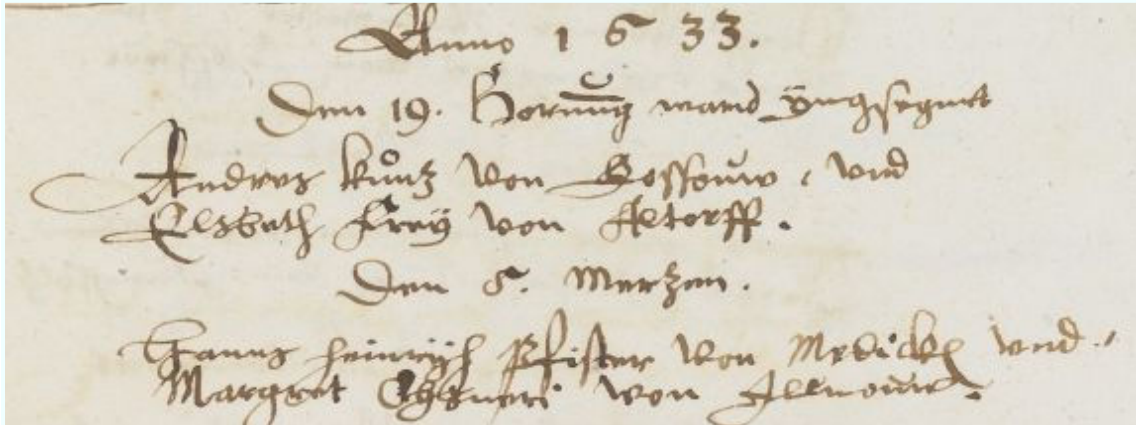 Anno 1633.
Den 19. Hornung ward yngsegnet
Andres Kůntz von Gossouw, vnd
Elsbeth Frey von Altorff.
Den 5. Mertzen.
Hanns Heinrych Pfister von vnd
Margret von Illnouw.